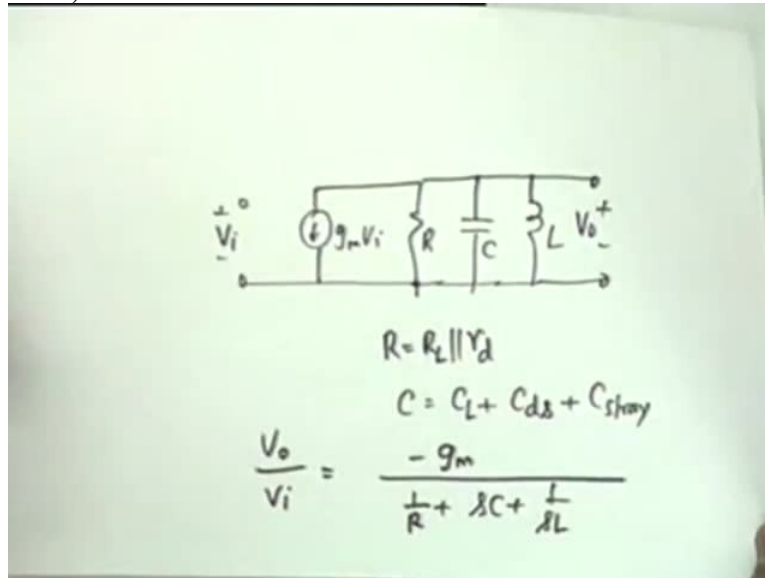 + Vi -
gmVi R C L V0 + -
R = RL || rd
C = CL + Cds + Cstray
V0 / Vi = - gm / (1/R + sC + 1/sL)